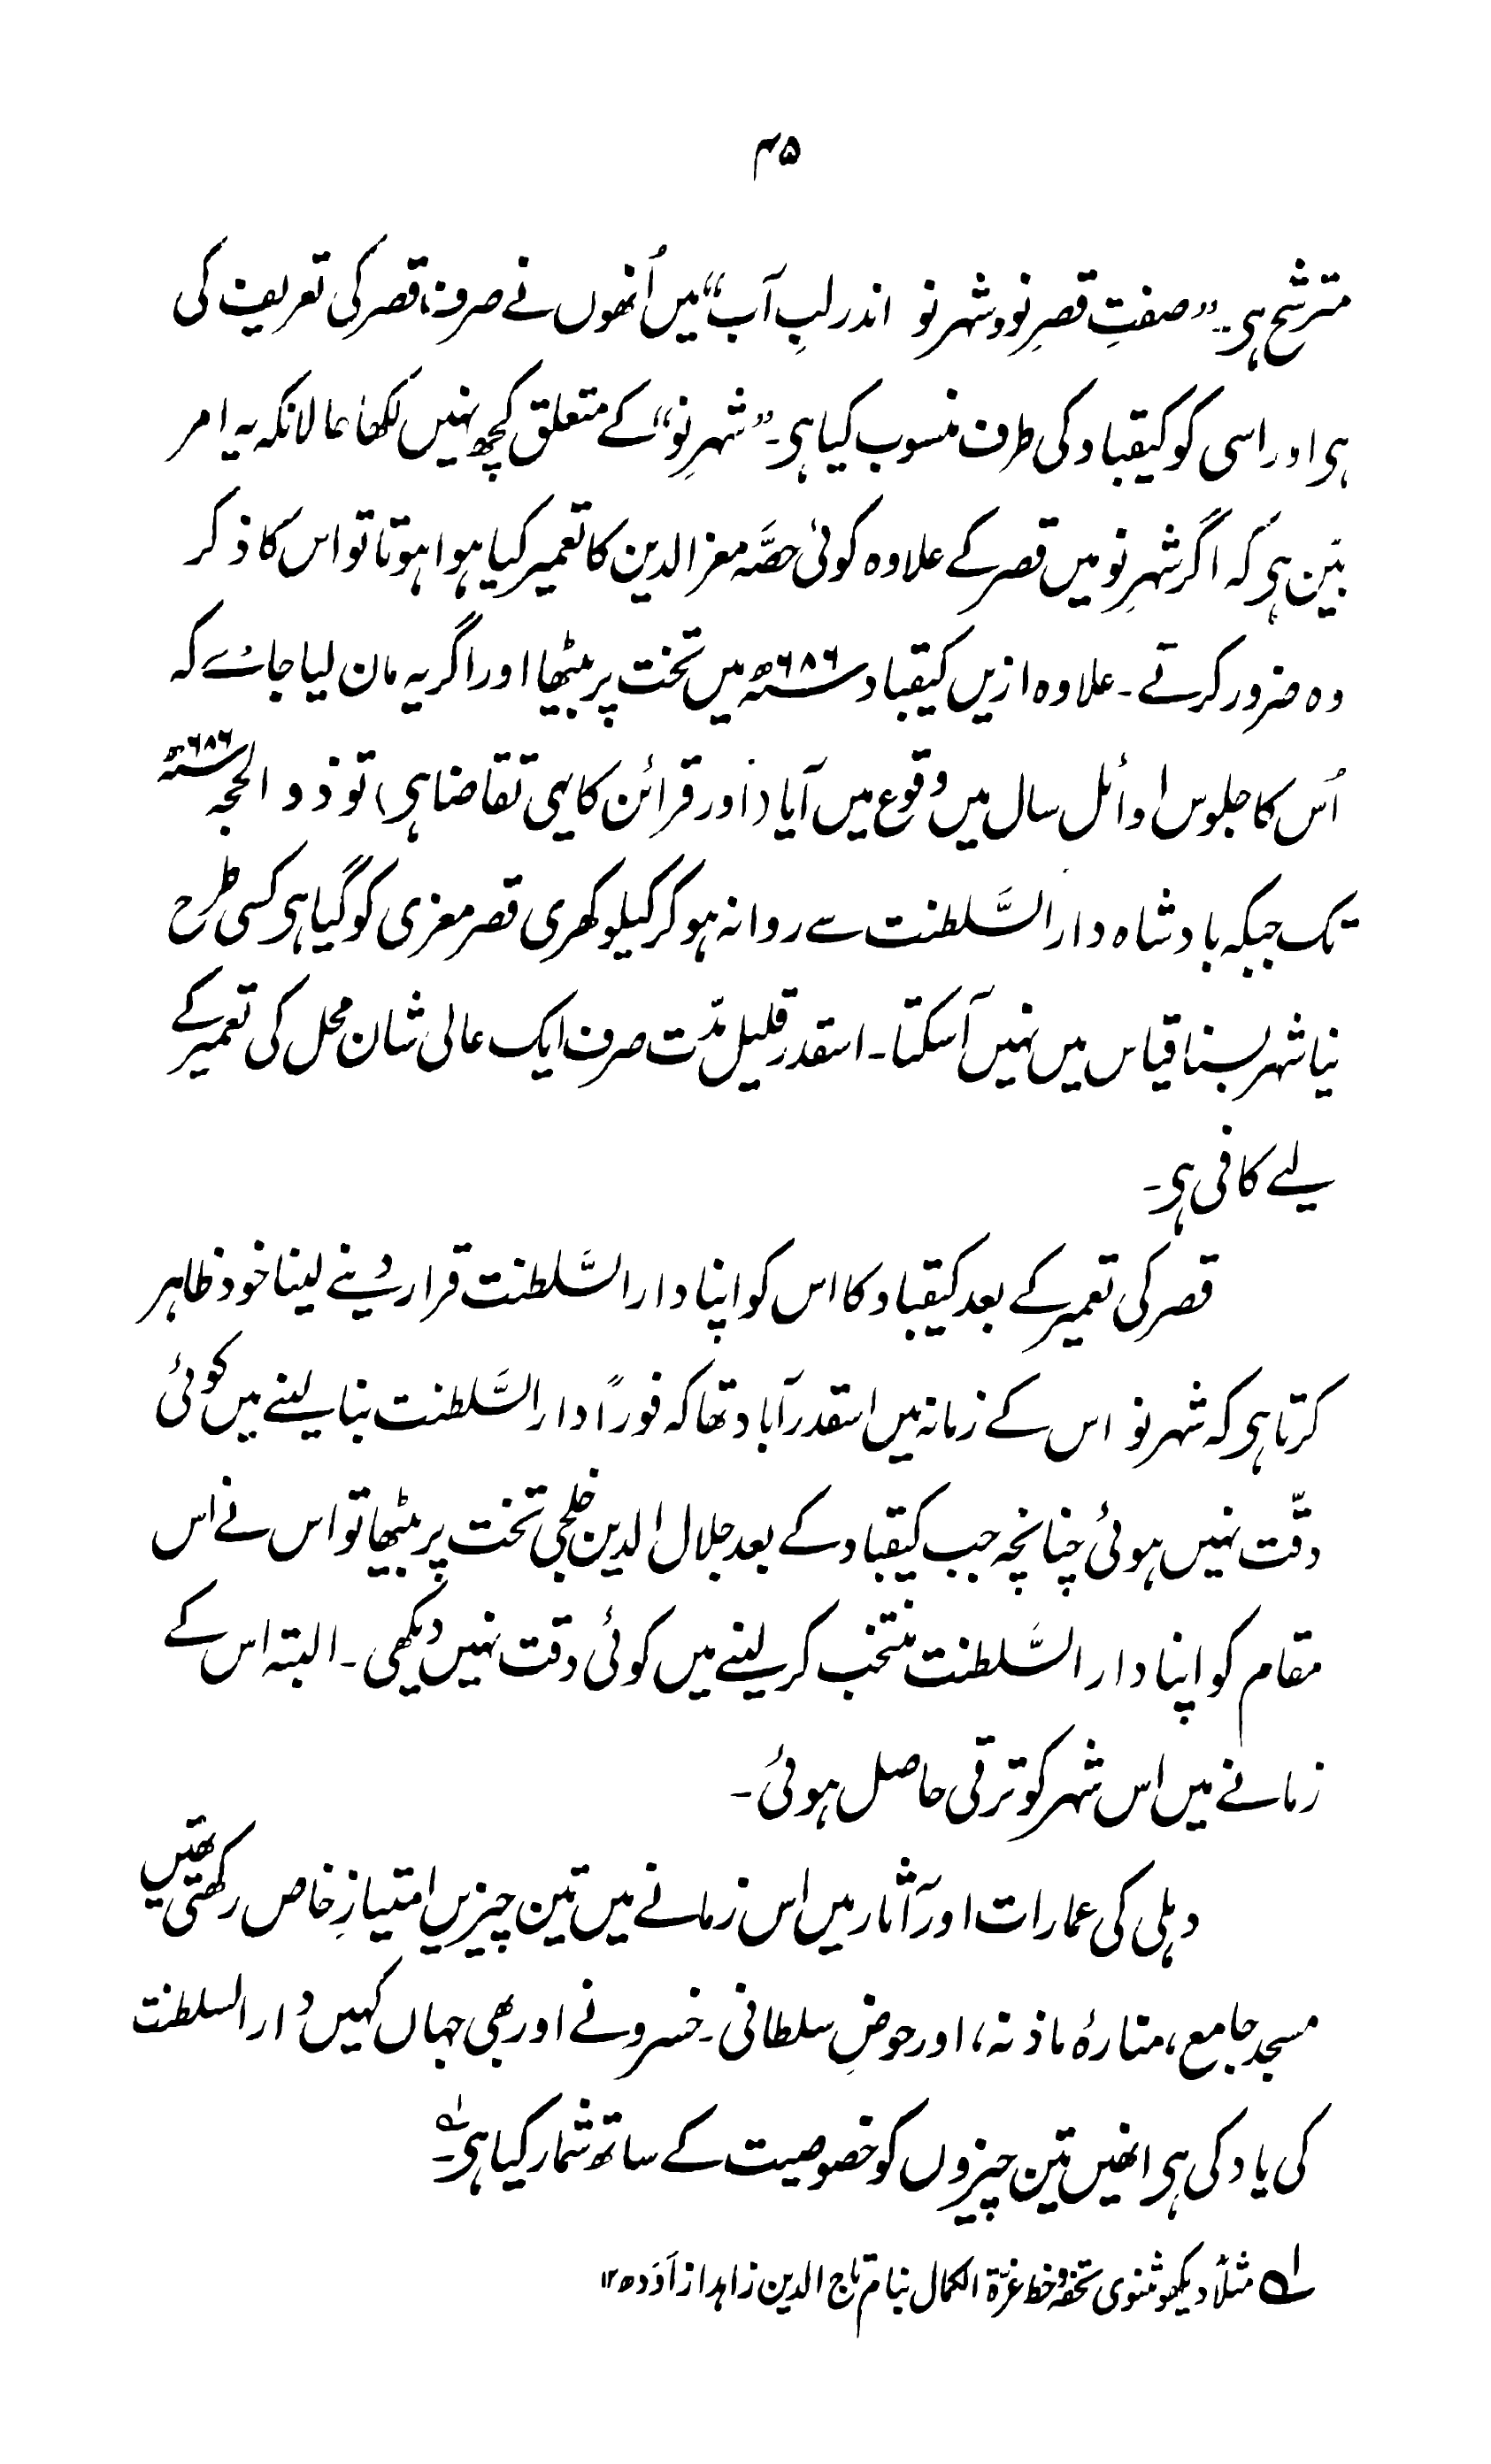 ۴۵
مترشح ہی۔ ”صفتِ قصرِ نو و شہر نو اندر لبِ آب“ میں اُنھوں نے صرف قصر کی تعریف کی
ہی اور اسی کو کیقباد کی طرف منسوب کیا ہی۔ ”شہرِ نو“ کے متعلق کچھ نہیں لکھا حالانکہ یہ امر
بیّن ہی کہ اگر شہرِ نو میں قصر کے علاوہ کوئی حصَّہ معز الدین کا تعمیر کیا ہوا ہوتا تو اس کا ذکر
وہ ضرور کرتے۔ علاوہ ازیں کیقباد ۶۸۶ھ میں تخت پر بیٹھا اور اگر یہ مان لیا جائے کہ
اُس کا جلوس اوائل سال میں وقوع میں آیا (اور قرائن کا یہی تقاضا ہی) تو ذو الحجہ ۶۸۶ھ
تک جبکہ بادشاہ دار السَّلطنت سے روانہ ہو کر کیلوکھری قصر معزی کو گیا ہی کسی طرح
نیا شہر بسنا قیاس میں نہیں آسکتا۔ اسقدر قلیل مدّت صرف ایک عالی شان محل کی تعمیر کے
لیے کافی ہی۔
قصر کی تعمیر کے بعد کیقباد کا اس کو اپنا دار السَّلطنت قرار دینے لینا خود ظاہر
کرتا ہی کہ شہر نو اس کے زمانہ میں اسقدر آباد تھا کہ فوراً دار السَّلطنت بنا لینے میں کوئی
دقّت نہیں ہوئی چنانچہ جب کیقباد کے بعد جلال الدین خلجی تخت پر بیٹھا تو اس نے اس
مقام کو اپنا دار السَّلطنت منتخب کر لینے میں کوئی دقت نہیں دیکھی۔ البتہ اس کے
زمانے میں اس شہر کو ترقی حاصل ہوئی۔
دہلی کی عمارات اور آثار میں اس زمانے میں تین چیزیں امتیازِ خاص رکھتی تھیں
مسجد جامع، منارۂ ماذنہ، اور حوضِ سلطانی۔ خسرو نے اور بھی جہاں کہیں دار السلطنت
کی یاد کی ہی انھیں تین چیزوں کو خصوصیت کے ساتھ شمار کیا ہی۔ ۱ه
۱ه مثلاً دیکھو مثنوی تحفہ و خط غرّۃ الکمال بنام تاج الدین زاہد از اَوَدھ ۱۲